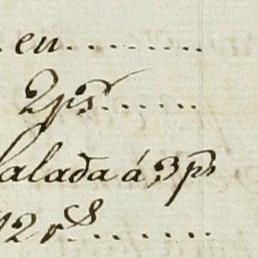 en........
2 p.s......
salada á 3 p.s
12 r.s.......